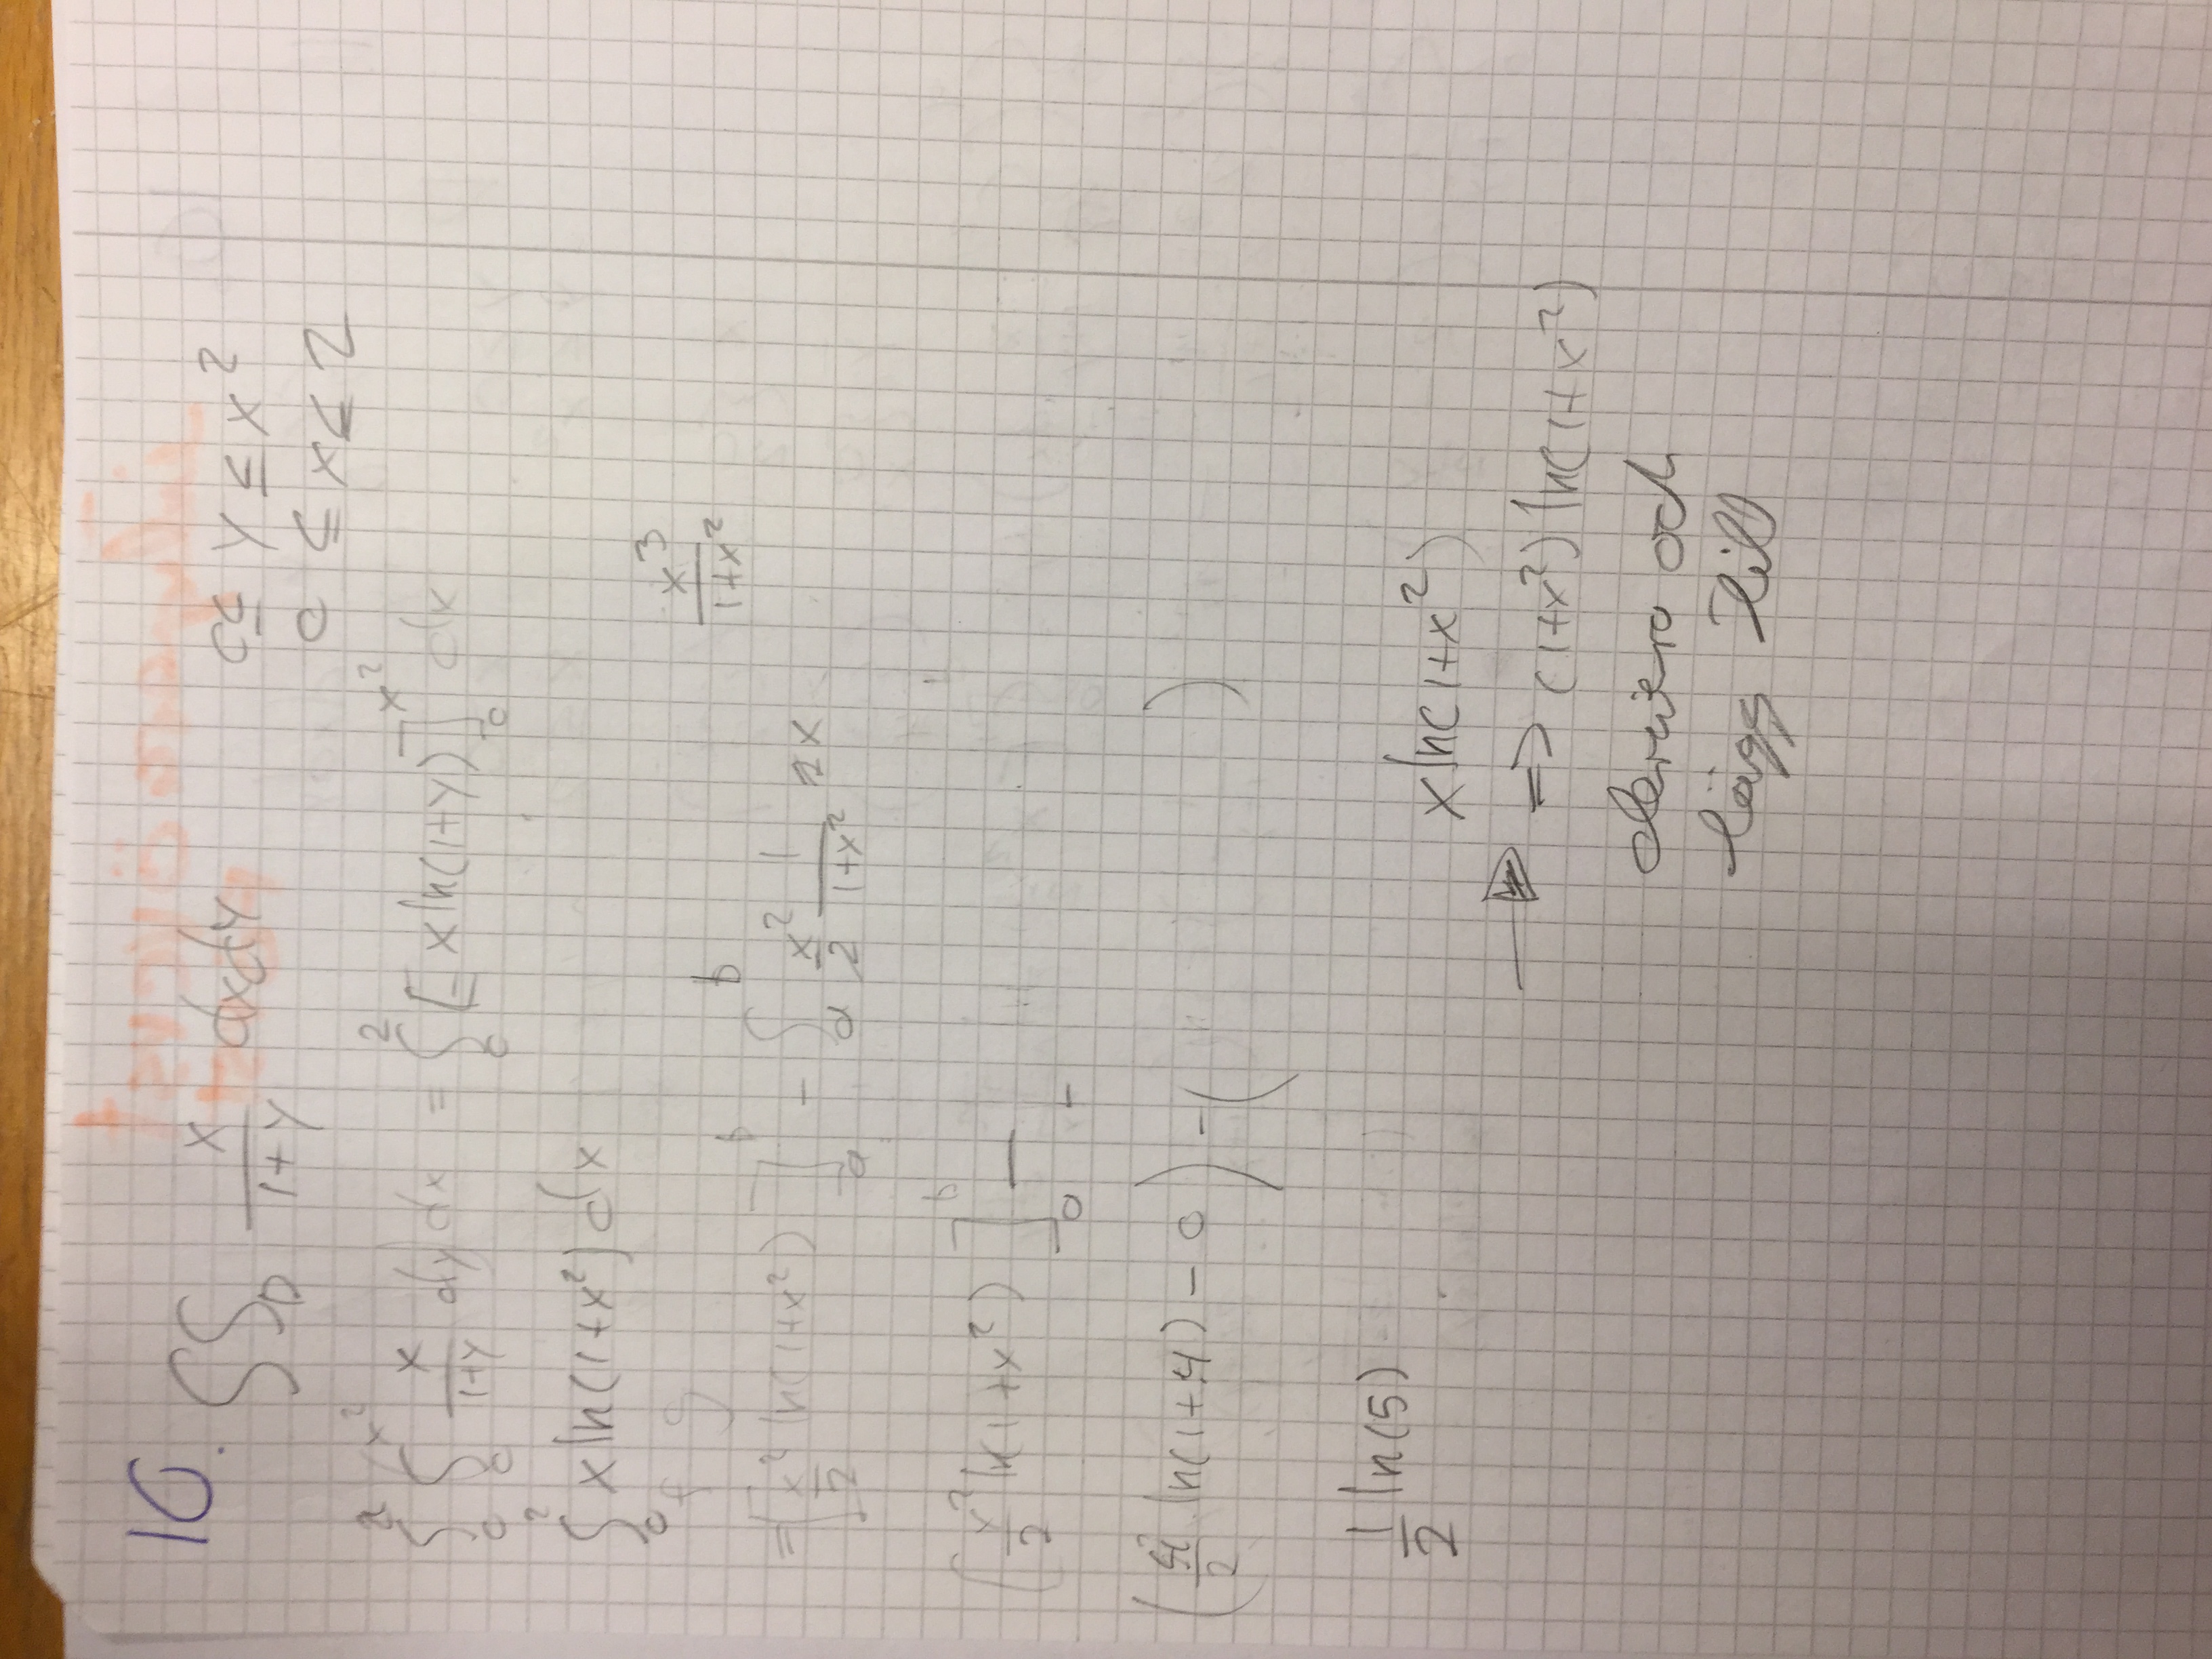 10. ∫∫_D x/(1+y) dxdy 0 ≤ y ≤ x²
0 ≤ x ≤ 2
∫_0^2 ∫_0^{x²} x/(1+y) dy dx = ∫_0^2 [x ln(1+y)]_0^{x²} dx
∫_0^2 x ln(1+x²) dx
f g
x³/(1+x²)
= [x²/2 ln(1+x²)]_a^b - ∫_a^b x²/2 1/(1+x²) 2x
[x²/2 ln(1+x²)]_a^b - -
(4/2 ln(1+4) - 0) - ( )
1/2 ln(5)
x ln(1+x²)
→ => (1+x²) ln(1+x²)
derivera och
lägg till